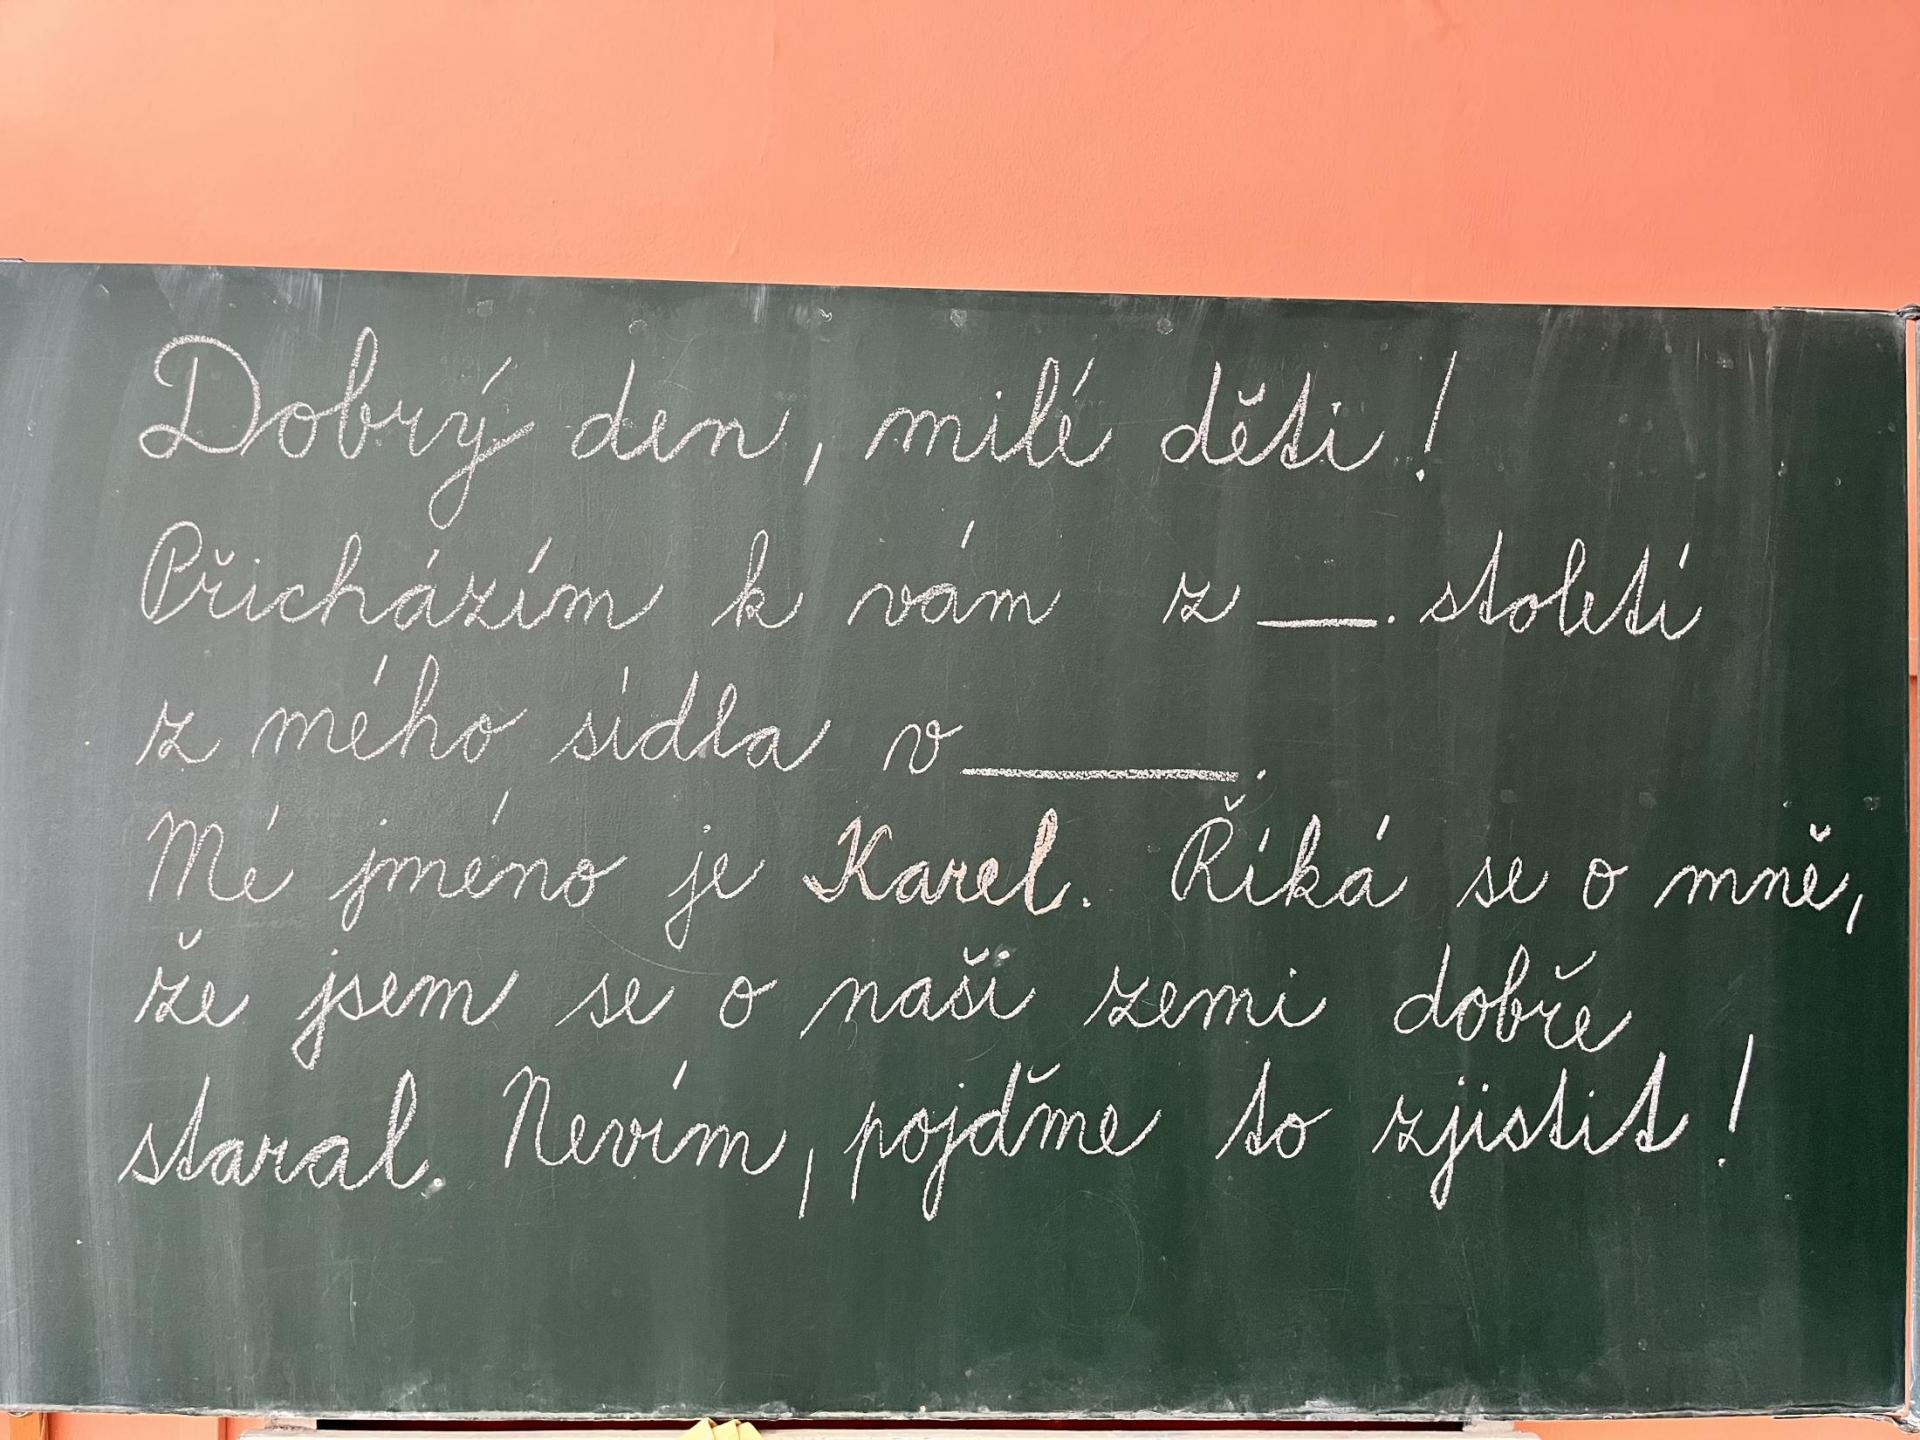 Dobrý den, milé děti!
Přicházím k vám z __. století
z mého sídla v ________.
Mé jméno je Karel. Říká se o mně,
že jsem se o naši zemi dobře
staral. Nevím, pojďme to zjistit!